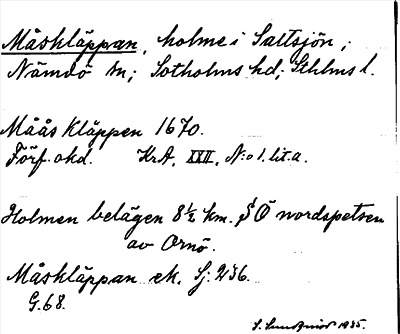 Måskläppan, holme i Saltsjön;
Nämdö sn; Sotholms hd; Sthlms l.
Måås Kläppen 1670.
Förf. okd. KrA, XXII, N:o 1. lit. a.
Holmen belägen 8½ km. SÖ nordspetsen
av Ornö.
Måskläppan ek. Sj. 236.
G. 68.
1935.